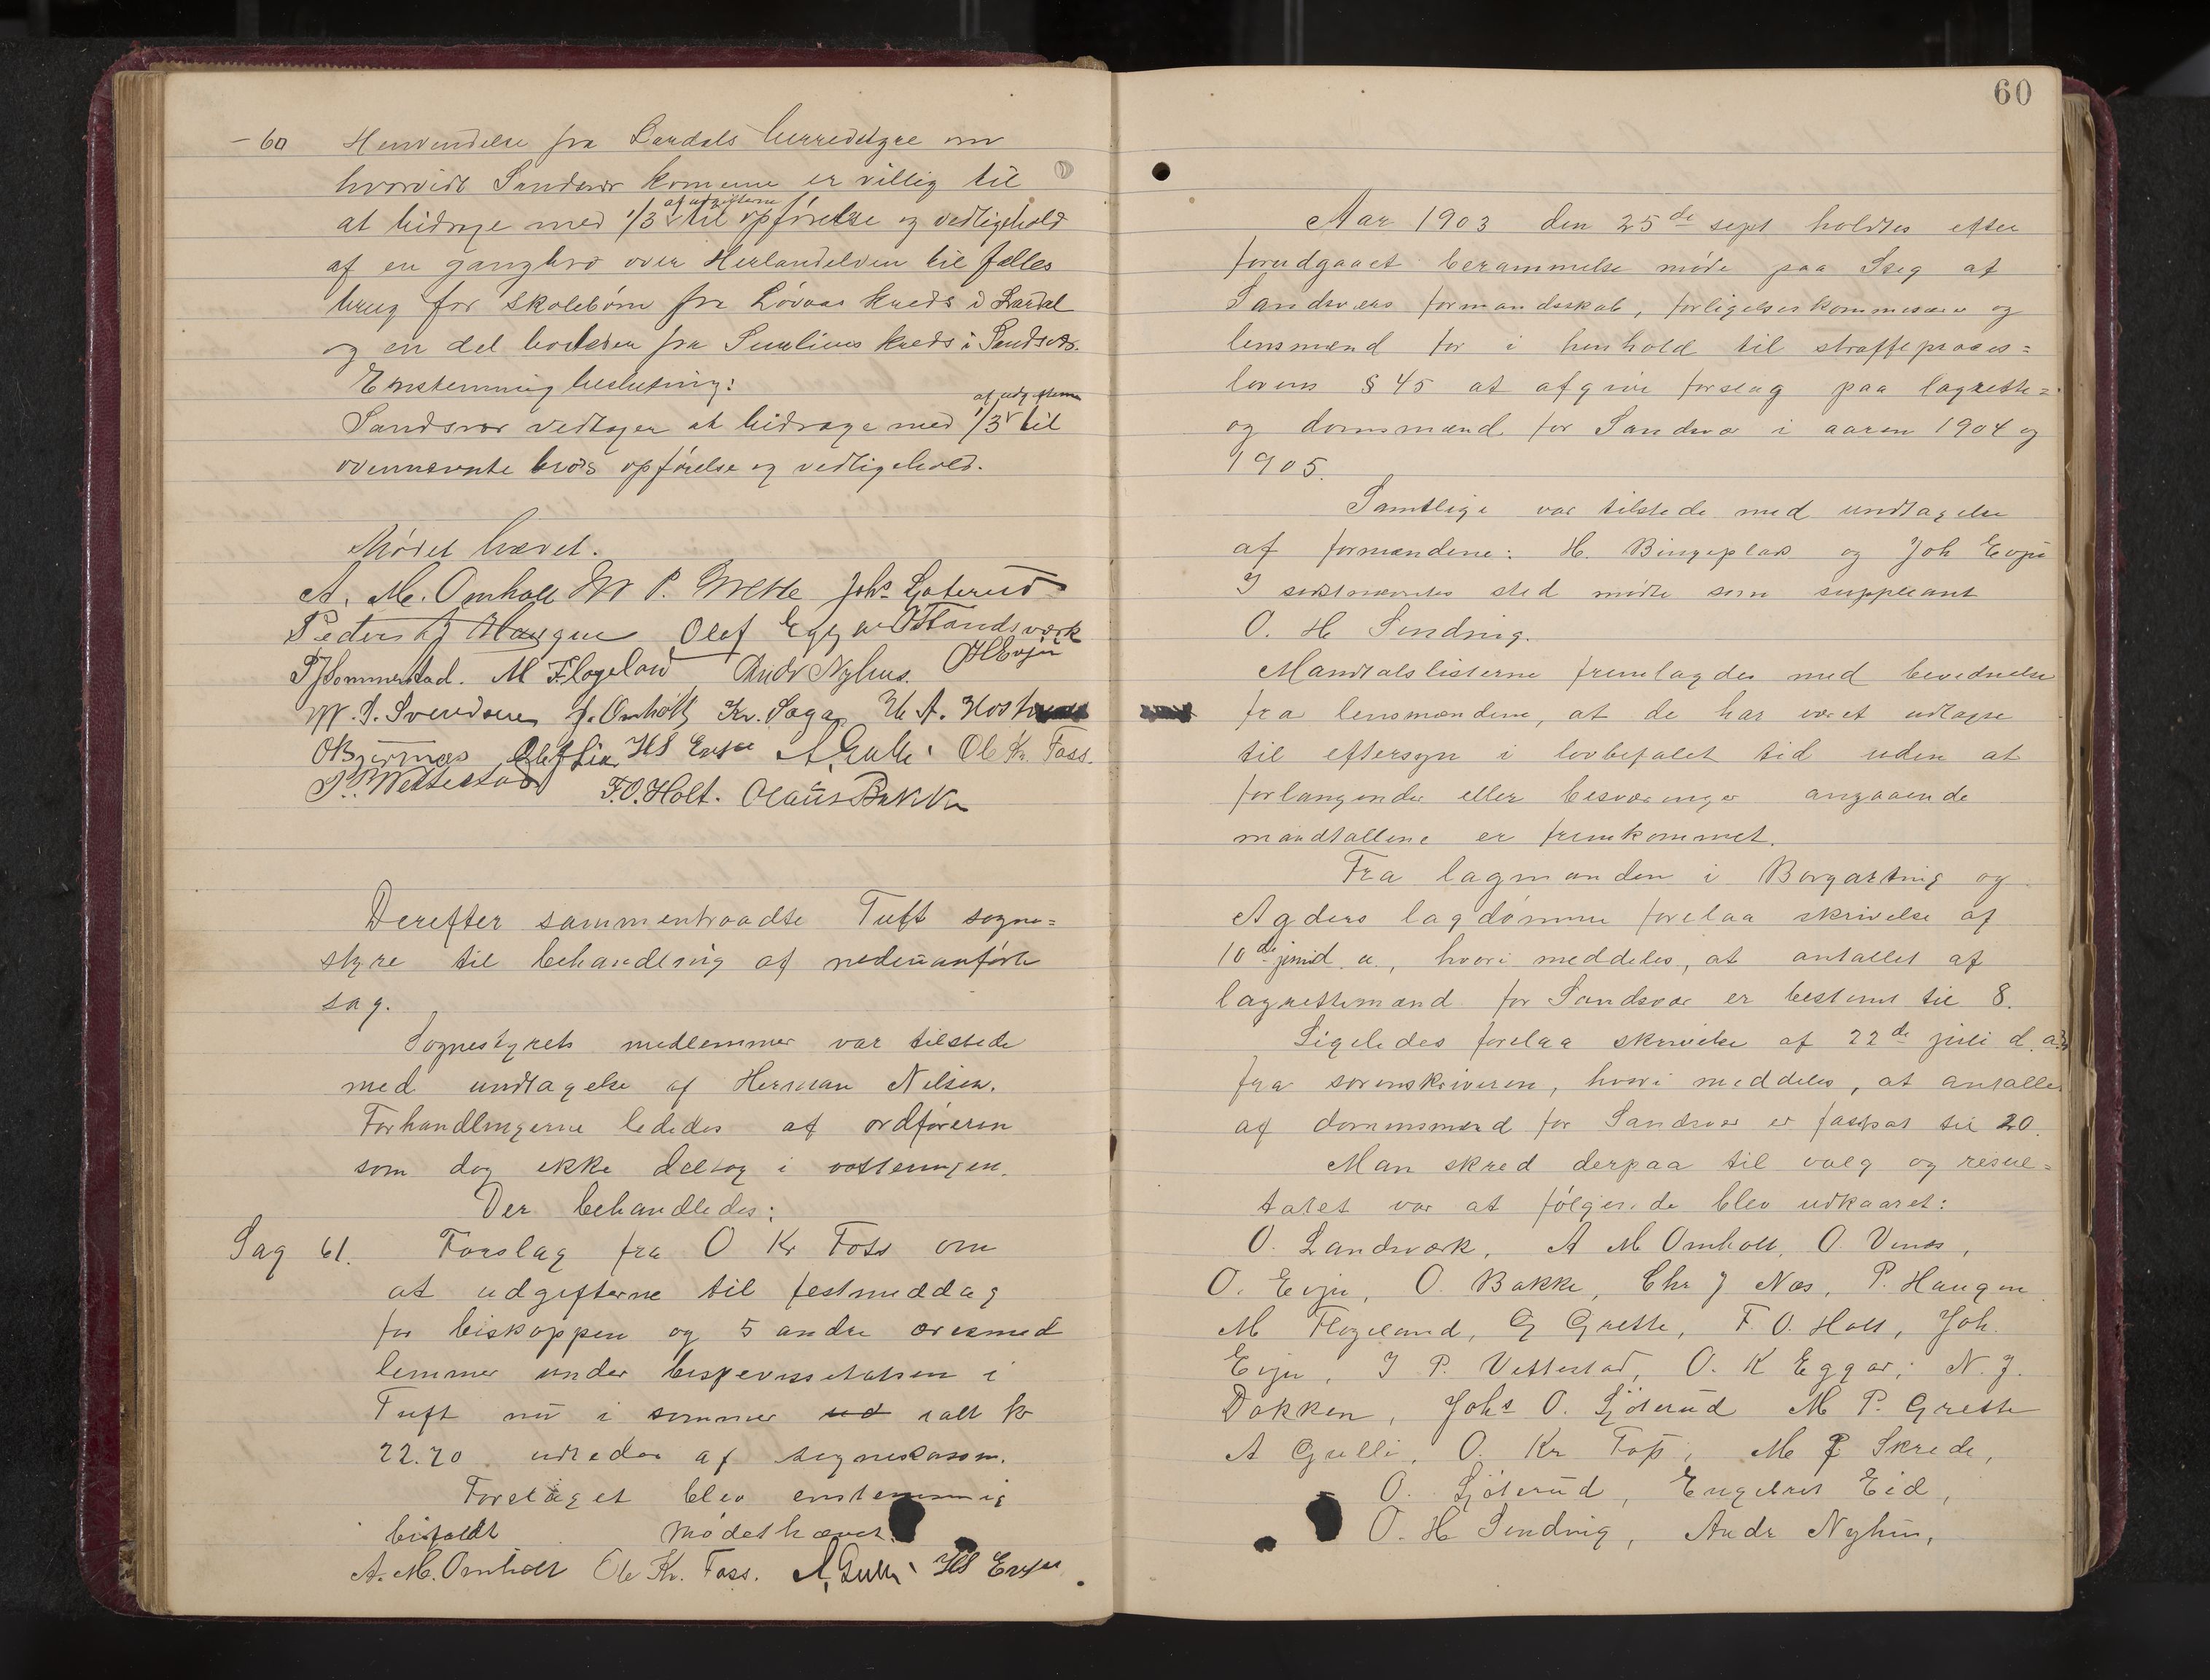 - 60 Henvendelse fra Lardals herredstyre om
hvorvidt Sandsvær komune er villig til
at bidrage med 1/3 af udgifterne til opførelse og vedligehold
af en gangbro over Herlandelven til fælles
brug for skolebørn fra Løvaas kreds i Lardal
og en del borteren fra kreds i Sandsvær.
Enstemmig beslutning:
Sandsvær vedtager at bidrage med 1/3 af udgifterne til
ovennævnte bros opførelse og vedligehold.
Mødet hævet.
A. M. Omholt M P. Grette Johs Sjøterud
Peder Haugen Olef Eggar O Landsværk
Sommerstad. M Flogeland Andr Nyhus. O H Evju
M. S. Svendsen J. Omholt Kr. Saga H. A. Kost
O Bjørnæs Olef Lia HS Evju A, Gulli Ole Kr. Foss.
P. Wettestad F. O. Holt. Olaus Bakke
Derefter sammentraadte Tuft sogne=
styre til behandling af nedenanførte
sag.
Sognestyrets medlemmer var tilstede
med undtagelse af Herman Nilsen.
Forhandlingerne lededes af ordføreren
som dog ikke deltog i votteringen.
Der behandledes:
Sag 61. Forslag fra O Kr Foss om
at udgifterne til festmiddag
for biskoppen og 5 andre æresmed
lemmer under bispevissitatsen i
Tuft nu i sommer ud ialt kr
22.70 udredes af sognekassen.
Forslaget blev enstemmig
bifaldt Mødet hævet.
A. M. Omholt Ole Kr. Foss. A, Gulli HS Evju
60
Aar 1903 den 25de sept holdtes efter
forudgaaet berammelse møde paa Steg af
Sandsværs formandsskab, forligelseskommisærer og
lensmænd for i henhold til straffeproces=
lovens § 45 at afgive forslag paa lagrette=
og domsmænd for Sandsvær i aarene 1904 og
1905.
Samtlige var tilstede med undtagelse
af formændene: H. Bingeplads og Joh Evju
I sidstnævntes sted mødte som suppleant
O. H Sending.
Mandtalslisterne fremlagdes med bevidnelse
fra lensmændene, at de har været udlagte
til eftersyn i lovbefalet tid uden at
forlangender eller besværinger angaaende
mandtallene er fremkommet.
Fra lagmanden i Borgarting og
Agders lagdømme forelaa skrivelse af
10de juni d. a., hvori meddeles, at antallet af
lagrettemænd for Sandsvær er bestemt til 8.
Ligeledes forelaa skrivelse af 22de juli d. a.
fra sorenskriveren, hvori meddeles, at antallet
af domsmænd for Sandsvær er fastsat til 20.
Man skred derpaa til valg og resul=
tatet var at følgende blev udkaaret:
O. Landsværk, A M Omholt, O. Vinæs,
O. Evju, O. Bakke, Chr J Næs, P. Haugen
M Flogeland, G Grette, F. O. Holt, Joh.
Evju, I P. Vettestad, O. K Eggar, N. J.
Dokken, Johs O. Sjøterud M P. Grette
A Gulli, O. Kr Foss, M P Skrede,
O. Sjøterud, Engebret Eid,
O. H Sending, Andr Nyhus,